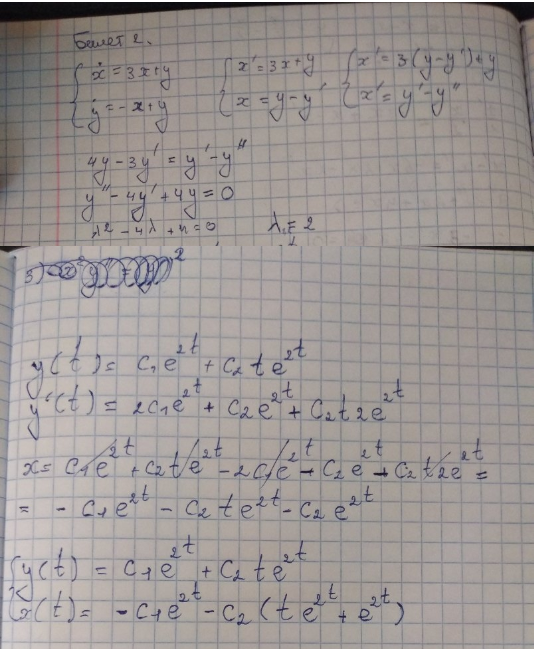 Билет 2.
{ ẋ = 3x+y { x' = 3x+y { x' = 3(y-y')+y
{ ẏ = -x+y { x = y-y' { x' = y'-y''
4y-3y' = y'-y''
y''-4y'+4y=0
λ²-4λ+4=0 λ₁=2
5)
y(t) = C₁e^2t + C₂te^2t
y'(t) = 2C₁e^2t + C₂e^2t + C₂t2e^2t
x = C₁e^2t + C₂te^2t - 2C₁e^2t - C₂e^2t - C₂t2e^2t =
= - C₁e^2t - C₂te^2t - C₂e^2t
{ y(t) = C₁e^2t + C₂te^2t
{ x(t) = -C₁e^2t - C₂(te^2t + e^2t)